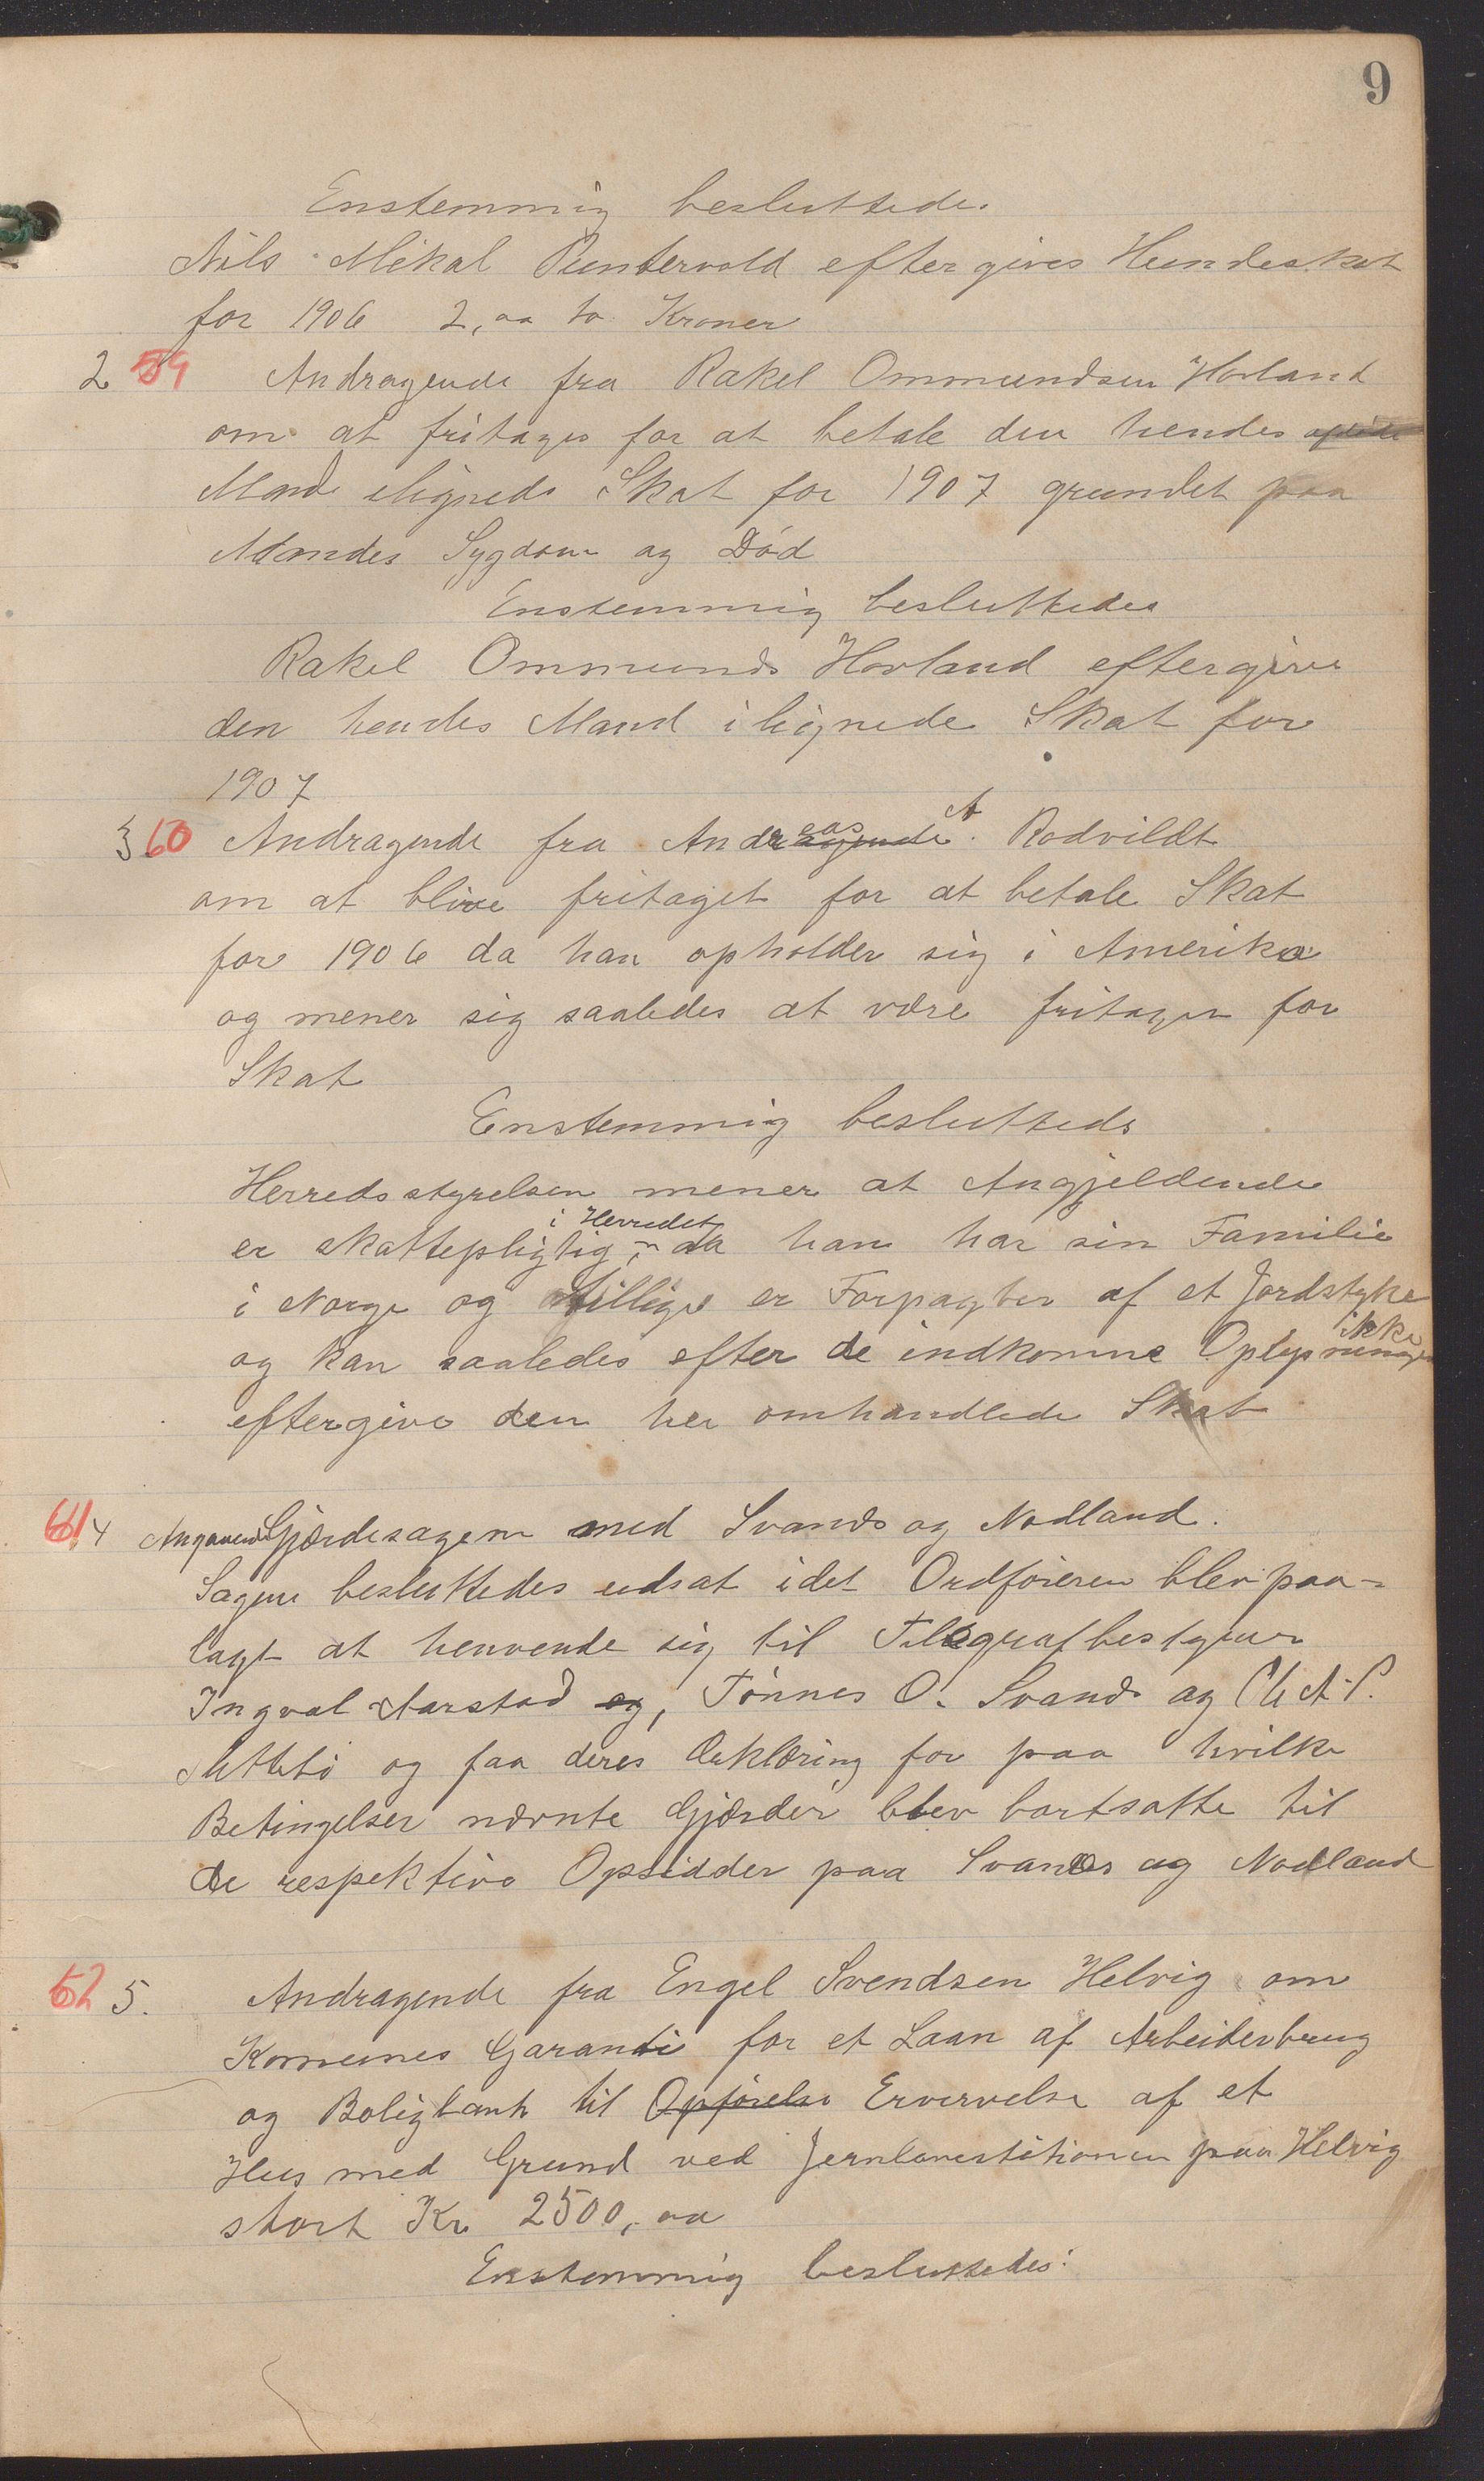 9
Enstemmig besluttedes
Nils Mikal Puntervold eftergives Hundeskat
for 1906 2,00 to Kroner
2 59 Andragende fra Rakel Ommundsen Hovland
om at fritages for at betale den hendes
Mand ilignede Skat for 1907 grundet paa
Mandes Sygdom og Död
Enstemmig besluttedes
Rakel Ommunds Hovland eftergives
den hendes Mand ilignede Skat for
1907
3 60 Andragende fra Andreas A. Rodvildt
om at blive fritaget for at betale Skat
for 1906 da han opholder sig i Amerika
og mener sig saaledes at være fritagen for
Skat
Enstemmig besluttedes
Herredsstyrelsen mener at Angjeldende
er skattepligtig i Herredet, da han har sin Familie
i Norge og tillige er Forpagter af et Jordstyke
og kan saaledes efter de indkomne Oplysninger ikke
eftergive den her omhandlede Skat
61 4 Angaaende Gjærdesagen med Svands og Nodland.
Sagen besluttedes udsat idet Ordföreren blev paa-
lagt at henvende sig til Telegrafbestyrer
Ingval Aarstad og, Tönnes O. Svands og Chr. A. P.
og faa deres Erklæring for paa hvilke
Betingelser nævnte Gjærder blev bortsatte til
de respektive Opsidder paa Svands og Nodland
62 5. Andragende fra Engel Svendsen Helvig om
Komunes Garanti for et Laan af Arbeiderbrug
og Boligbank til Opförelse Ervervelse af et
Hus med Grund ved Jernbanestationen paa Helvig
stort Kr 2500,00
Enstemmig besluttedes: